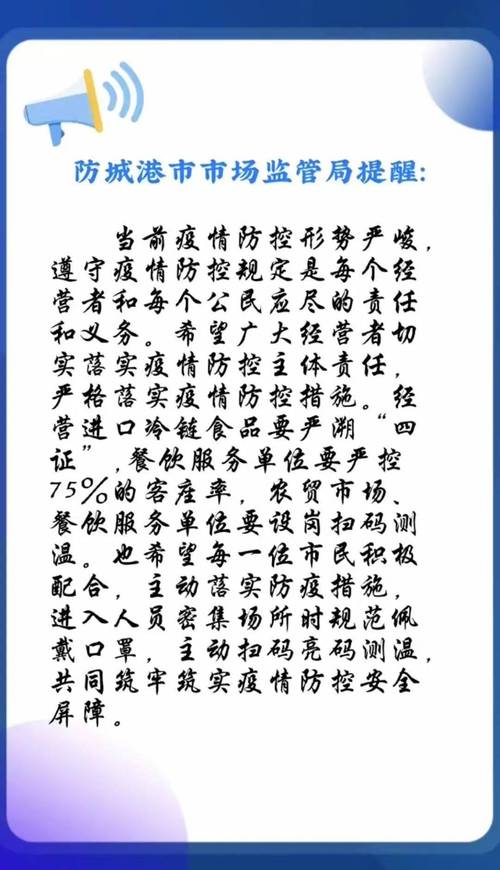 防城港市市场监管局提醒:
当前疫情防控形势严峻，
遵守疫情防控规定是每个经
营者和每个公民应尽的责任
和义务。希望广大经营者切
实落实疫情防控主体责任，
严格落实疫情防控措施。经
营进口冷链食品要严溯“四
证”,餐饮服务单位要严控
75%的客座率，农贸市场、
餐饮服务单位要设岗扫码测
温。也希望每一位市民积极
配合，主动落实防疫措施，
进入人员密集场所时规范佩
戴口罩，主动扫码亮码测温，
共同筑牢筑实疫情防控安全
屏障。